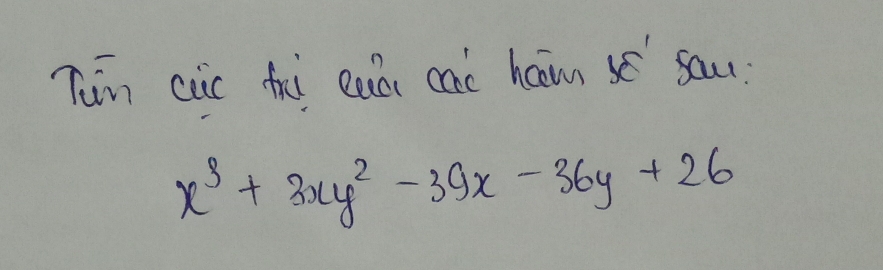 Tìm cực trị của các hàm số sau:
x³ + 3xy² - 39x - 36y + 26